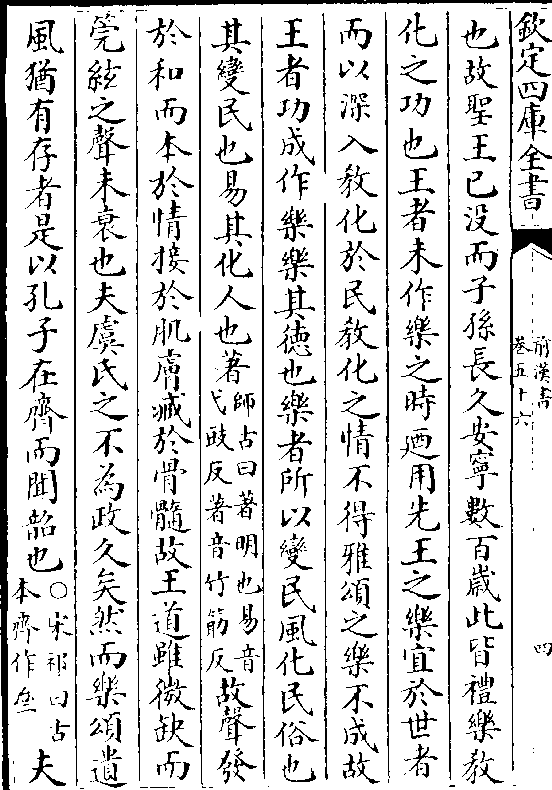 欽定四庫全書
前漢書
卷五十六
四
也故聖王已沒而子孫長久安寧數百歲此皆禮樂教
化之功也王者未作樂之時廼用先王之樂宜於世者
而以深入教化於民教化之情不得雅頌之樂不成故
王者功成作樂樂其德也樂者所以變民風化民俗也
其變民也易其化人也著師古曰著明也易音弋豉反著音竹筯反故聲發
於和而本於情接於肌膚臧於骨髓故王道雖微缺而
筦絃之聲未衰也夫虞氏之不為政久矣然而樂頌遺
風猶有存者是以孔子在齊而聞韶也○宋祁曰古本齊作亝夫